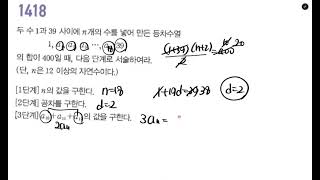 1418
두 수 1과 39 사이에 n개의 수를 넣어 만든 등차수열
1, a₁, a₂, a₃, ⋯, aₙ, 39
의 합이 400일 때, 다음 단계로 서술하여라.
(단, n은 12 이상의 자연수이다.)
[1단계] n의 값을 구한다. n=18
[2단계] 공차를 구한다. d=2
[3단계] a₁₀+a₁₁+a₁₂의 값을 구한다.
(1+39)(n+2)
2
=400
20
1+19d=39 38
d=2